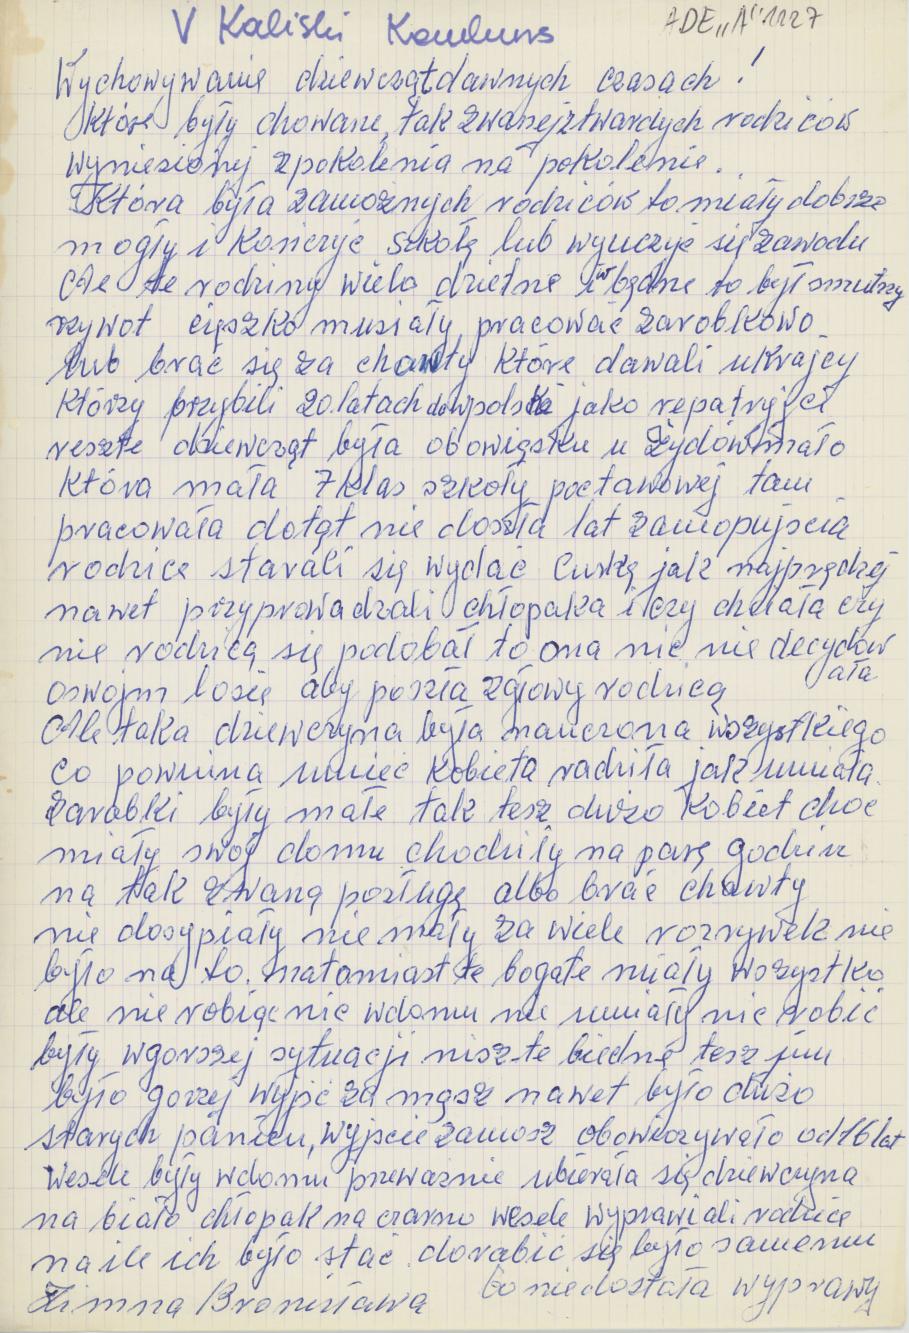 V Kaliski Konkurs
ADE „A" 1227
Wychowywanie dziewcząt dawnych czasach!
które były chowane, tak zwanej z twardych rodziców
wyniesionej z pokolenia na pokolenie.
Która była zamożnych rodziców to miały dobrze
mogły i kończyć szkołę lub wyuczyć się zawodu
Ale te rodziny wielo dzietne i biedne to był smutny
rzywot cięszko musiały pracować zarobkowo
lub brać się za chawty które dawali ukrajcy
którzy przybili 20.latach do polski jako repatryjci
reszte dziewcząt była obowiąsku u Żydów mało
która mała 7 klas szkoły poctawowej tam
pracowała dotąt nie doszła lat zamopujścia
rodzice starali się wydać Curkę jak najprędzej
nawet przyprowadzali chłopaka i czy chciała czy
nie rodzicą się podobał to ona nic nie decydow
ała
oswojm losię aby poszła zgłowy rodzicą
Ale taka dziewczyna była nauczona wszystkiego
co powinna umieć kobieta radziła jak umiała.
Zarobki były małe tak tesz dużo kobiet choć
miały swoj domu chodziły na parę godzin
na tak zwaną posługę albo brać chawty
nie dosypiały nie mały za wiele rozrywek nie
było na to. natomiast te bogate miały wszystko
ale nie robiąc nic wdomu nie umiały nic robić
były wgorszej sytuacji nisz te biedne tesz jim
było gorzej wyjść za męsz nawet było dużo
starych panien, wyjście zamosz obowiozywało od 16 lat
Wesele były wdomu przeważnie ubierała się dziewczyna
na biało chłopak na czarno wesele wyprawiali rodzice
na ile ich było stać. dorabić się było samemu
bo niedostała wyprawy
Zimna Bronisława